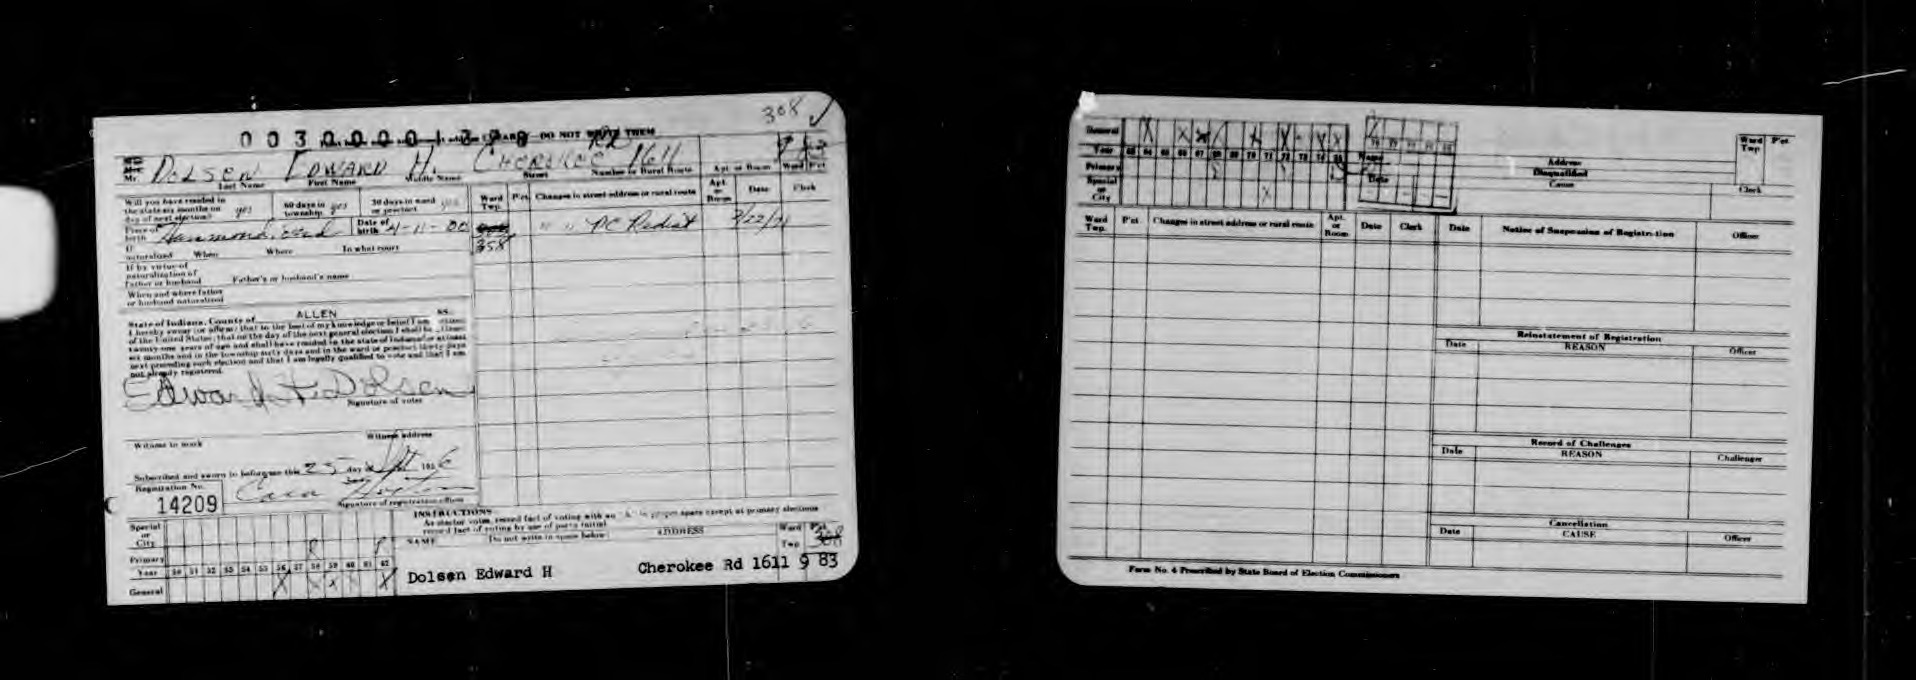 308 ✓
DO NOT WRITE THEM
Mr. DOLSEN EDWARD H. CHEROKEE RD 1611
Last Name First Name Middle Name Street Number or Rural Route Apt or Room Ward Pct
Will you have resided in the state six months on day of next election? yes 60 days in township yes 30 days in ward or precinct yes
Place of birth Hammond, Ind Date of birth 4-11-00
If naturalized When Where In what court
If by virtue of naturalization of Father or husband Father's or husband's name
When and where father or husband naturalized
State of Indiana, County of ALLEN SS.
I hereby swear (or affirm) that to the best of my knowledge or belief I am citizen
of the United States; that on the day of the next general election I shall be
twenty-one years of age and shall have resided in the state of Indiana for at least
six months and in the township sixty days and in the ward or precinct thirty days
next preceding such election and that I am legally qualified to vote and that I am
not already registered.
Edward H. Dolsen
Signature of voter
Witness to mark Witness address
Subscribed and sworn to before me this 25 day of Sept 1956
Registration No.
14209
Signature of registration officer
Ward Twp. Pct. Changes in street address or rural route Apt. or Room Date Clerk
358 " " PC Redist
INSTRUCTIONS
As elector votes, record fact of voting with an "X" in proper space except at primary elections
record fact of voting by use of party initial
NAME Do not write in space below ADDRESS Ward Twp Pct.
308
Special or City
Primary R R
Year 50 51 52 53 54 55 56 57 58 59 60 61 62
General X X X X X
Dolsen Edward H Cherokee Rd 1611 9 83
General
Year 63 64 65 66 67 68 69 70 71 72 73 74 75
Primary
Special or City
Name
Date
Address
Disqualified
Cause
Clerk
Ward Twp Pct.
Ward Twp. Pct. Changes in street address or rural route Apt. or Room Date Clerk
Date Notice of Suspension of Registration Officer
Reinstatement of Registration
Date REASON Officer
Record of Challenges
Date REASON Challenger
Cancellation
Date CAUSE Officer
Form No. 4 Prescribed by State Board of Election Commissioners